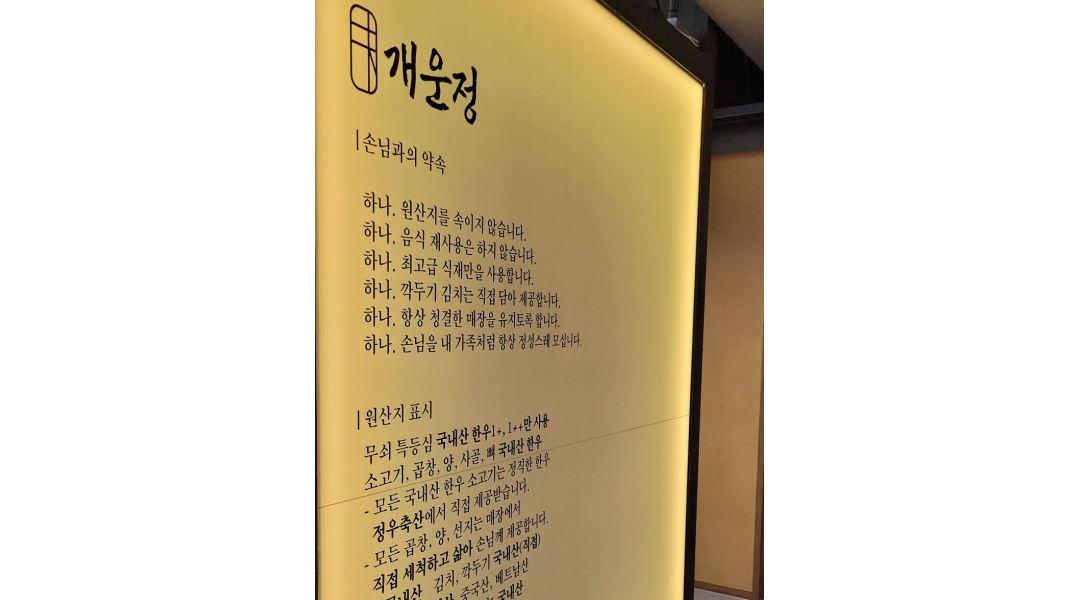 개운정
손님과의 약속
하나. 원산지를 속이지 않습니다.
하나. 음식 재사용은 하지 않습니다.
하나. 최고급 식재만을 사용합니다.
하나. 깍두기 김치는 직접 담아 제공합니다.
하나. 항상 청결한 매장을 유지토록 합니다.
하나. 손님을 내 가족처럼 항상 정성스레 모십니다.
원산지 표시
무쇠 특등심 국내산 한우1+, 1++만 사용
소고기, 곱창, 양, 사골, 뼈 국내산 한우
- 모든 국내산 한우 소고기는 정직한 한우
정우축산에서 직접 제공받습니다.
- 모든 곱창, 양, 선지는 매장에서
직접 세척하고 삶아 손님께 제공합니다.
국내산 김치, 깍두기 국내산(직접)
중국산, 베트남산
국내산